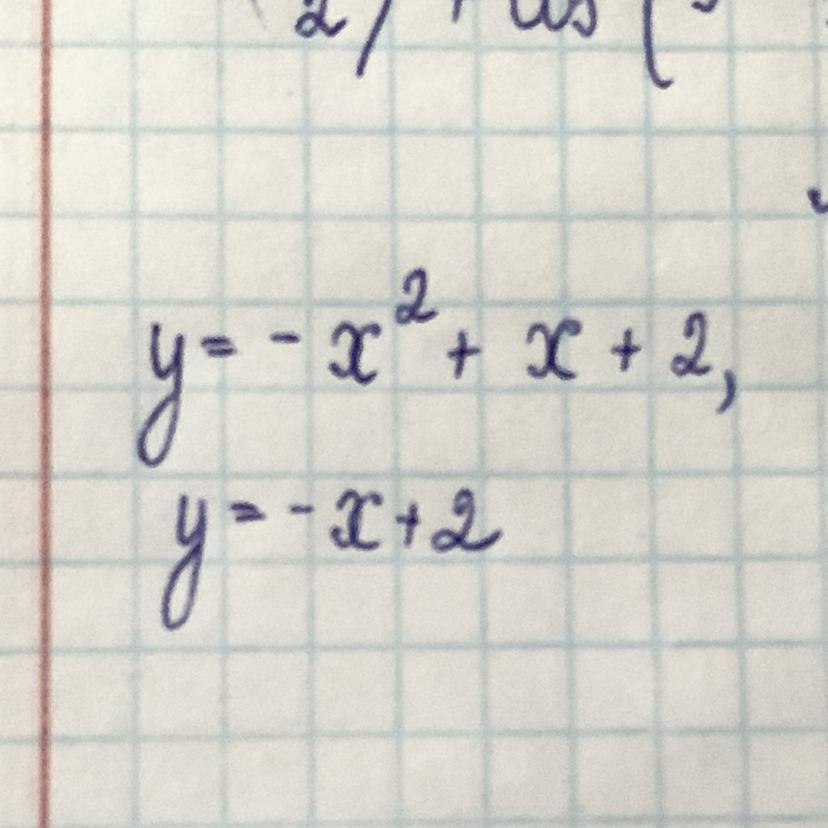 y = - x² + x + 2,
y = -x+2